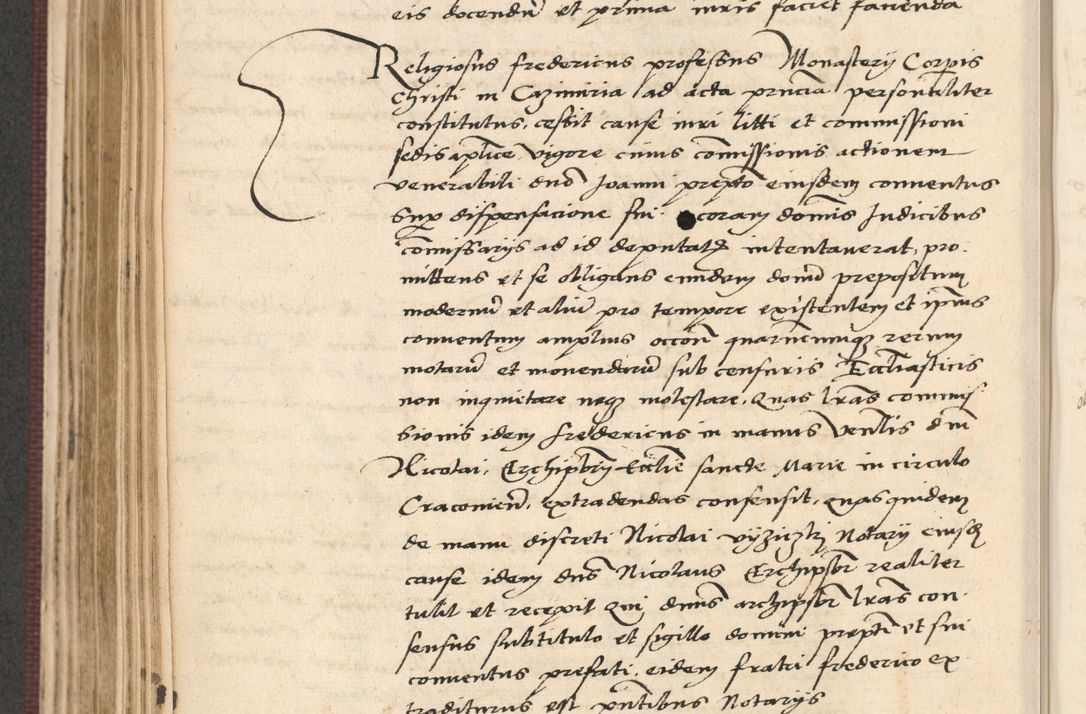 eis docendum et prima iuris faciet facienda
Religiosus fredericus professus Monasterij Corpis
Christi in Cazimiria ad acta prncia personaliter
constitutus, cessit cause iuri litti et commissioni
sedis aplice vigore cuius comissionis actionem
venerabili dno Joanni prepto eiusdem conuentus
sup dispensacione sui coram domis Judicibus
comissarijs ad id deputatis intentauerat, pro
mittens et se obligans eundem domu prepositum
modernu et aliu pro tempore existentem et ipius
conuentum amplius occon quarucunque rerum
motaru et mouendaru sub censuris Eccliasticis
non inquietare neque molestare, Quas lras commis
sionis idem fredericus in manus venlis dni
Nicolai, Archipbri Ecclie sancte Marie in circulo
Cracouien, extradendas consensit, quas quidem
de manu discreti Nicolai Notarij eiusde
cause idem dns Nicolaus Archipsbr realiter
tulit et recepit Qui dnus archipsbr lras con
sensus subtitulo et sigillo domini prepti et sui
conuentus prefati, eidem fratri frederico ex
traditurus est pntibus Notarijs